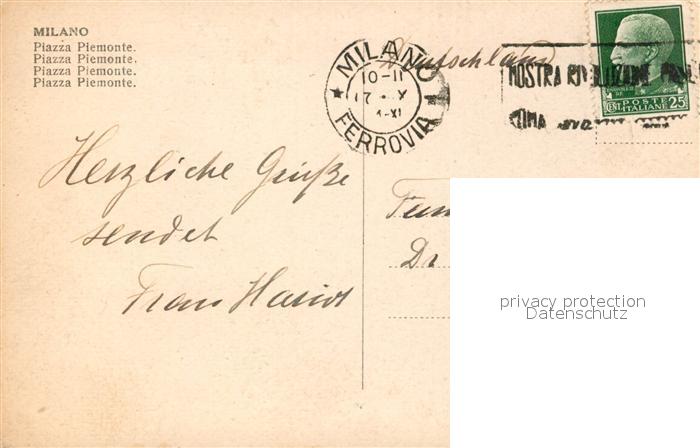 MILANO
Piazza Piemonte.
Piazza Piemonte.
Piazza Piemonte.
Piazza Piemonte.
MILANO
10-11
FERROVIA
Deutschland
MOSTRA RIVOLUZIONE
POSTE ITALIANE
CENT. 25
Herzliche Grüße
sendet
Franz
Dr
privacy protection
Datenschutz